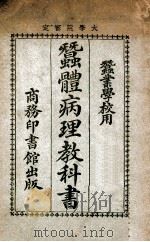 大學院審定
蠶業學校用
蠶體病理教科書
商務印書館出版